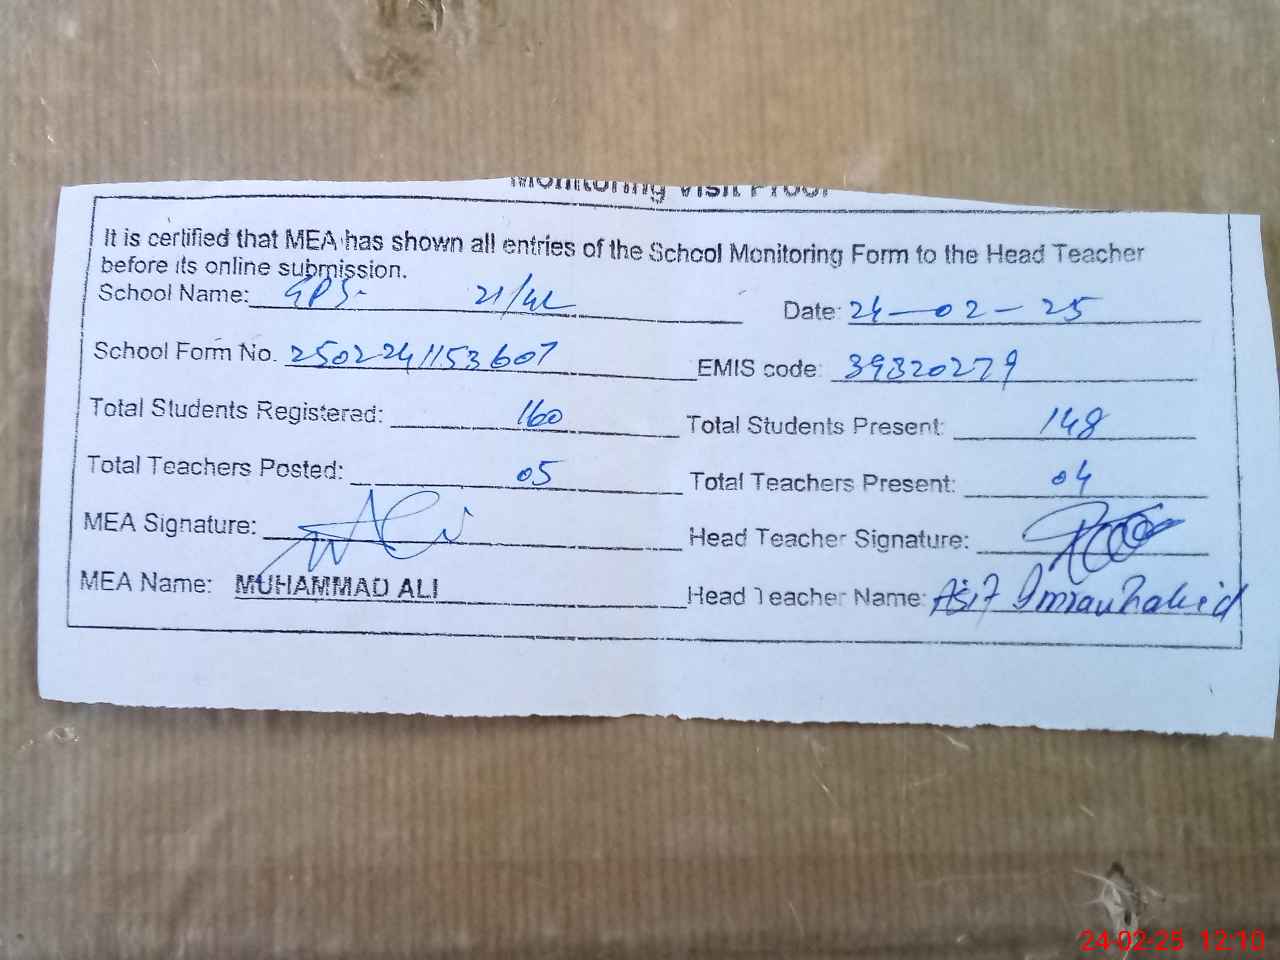 Monitoring Visit Proof
It is certified that MEA has shown all entries of the School Monitoring Form to the Head Teacher
before its online submission.
School Name: GPS 21/4L Date: 24-02-25
School Form No. 2502241153607 EMIS code: 39320279
Total Students Registered: 160 Total Students Present: 148
Total Teachers Posted: 05 Total Teachers Present: 04
MEA Signature: Head Teacher Signature:
MEA Name: MUHAMMAD ALI Head Teacher Name: Asif Imran Zahid
24-02-25 12:10